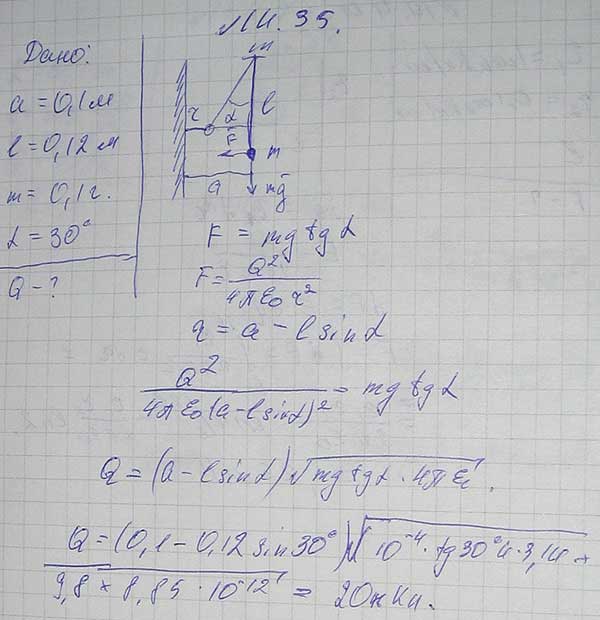 М.Н. 35.
Дано:
a = 0,1 м
l = 0,12 м
m = 0,1 г.
α = 30°
Q - ?
m
r
α
l
F
m
a
mg
F = mg tg α
F = Q² / 4πε₀ r²
r = a - l sin α
Q² / 4πε₀(a - l sin α)² = mg tg α
Q = (a - l sin α) √mg tg α · 4πε₀.
Q = (0,1 - 0,12 sin 30°) √10⁻⁴ · tg 30° 4 · 3,14 ×
9,8 × 8,85 · 10⁻¹² = 20 н Кл.